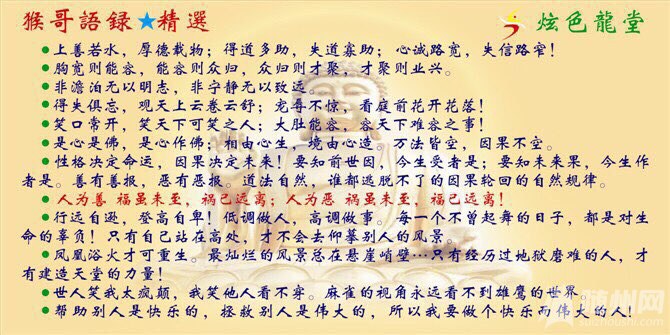 猴哥語録★精選
炫色龍堂
●上善若水，厚德载物；得道多助，失道寡助；心诚路宽，失信路窄！
●胸宽则能容，能容则众归，众归则才聚，才聚则业兴。
●非澹泊无以明志，非宁静无以致远。
●得失俱忘，观天上云卷云舒；宠辱不惊，看庭前花开花落！
●笑口常开，笑天下可笑之人；大肚能容，容天下难容之事！
●是心是佛，是心作佛；相由心生，境由心造。万法皆空，因果不空。
●性格决定命运，因果决定未来！要知前世因，今生受者是；要知未来果，今生作
者是。善有善报，恶有恶报。道法自然，谁都逃脱不了的因果轮回的自然规律。
●人为善 福虽未至，祸已远离；人为恶 祸虽未至，福已远离！
●行远自迩，登高自卑！低调做人，高调做事。每一个不曾起舞的日子，都是对生
命的辜负！只有自己站在高处，才不会去仰摹别人的风景。
●凤凰浴火才可重生。最灿烂的风景总在悬崖峭壁…只有经历过地狱磨难的人，才
有建造天堂的力量！
●世人笑我太疯颠，我笑他人看不穿。麻雀的视角永远看不到雄鹰的世界
●帮助别人是快乐的，拯救别人是伟大的，所以我要做个快乐而伟大的人！
随州网